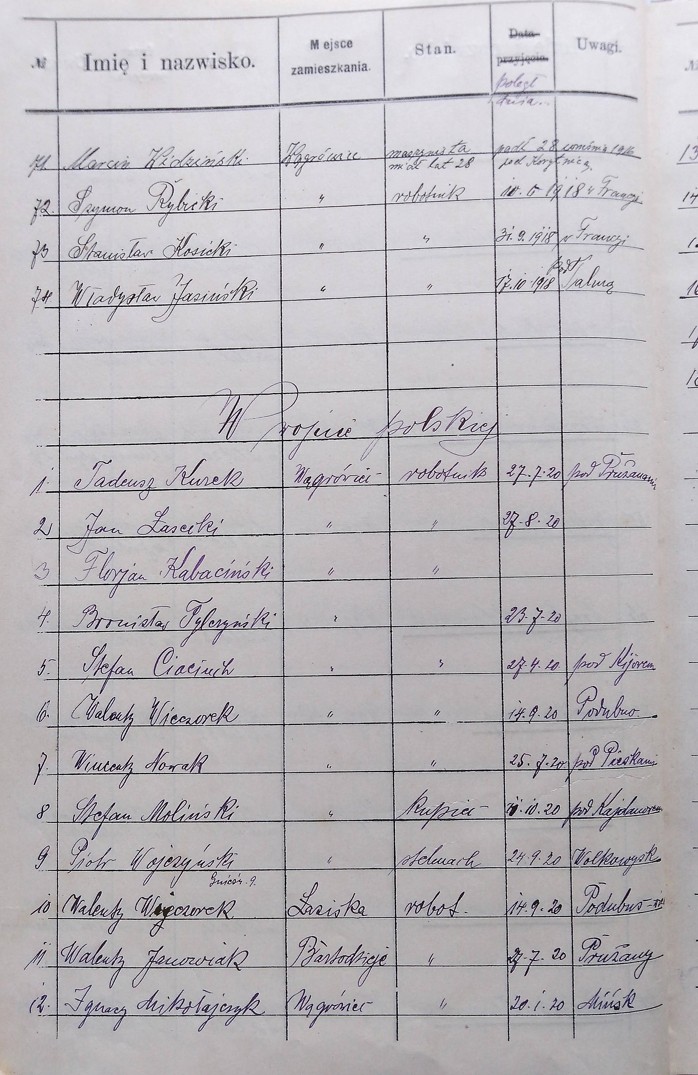 № Imię i nazwisko. Miejsce zamieszkania. Stan. Data przyjęcia. Uwagi.
poległ dnia.
71. Marcin Widziński Wągrówiec maszynista padł 28
miał lat 28 pod
72. Szymon Rybicki " robotnik 10.5 1918 w Francji
73 Stanisław Kosicki " " 31.9.1918 w Francji
74 Władysław Jasiński " " 17.10.1918 pod
W wojnie polskiej
1. Tadeusz Kurek Wągrówiec robotnik 27.7.20 pod Prużanami
2 Jan Łasecki " " 27.8.20
3 Florjan Kabaciński " "
4. Bronisław Pylczyński " 23.7.20
5. Stefan Ciaciuch " " 27.4.20 pod Kijowem
6. Walenty Wieczorek " " 14.9.20 Podubno
7. Wincenty Nowak " " 25.7.20 pod Pieskami
8 Stefan Moliński " kupiec 11.10.20 pod Kajdanowem
9 Piotr Wojczyński " stelmach 24.9.20 Wołkowysk
10 Walenty Wieczorek Łaziska robot. 14.9.20
11. Walenty Janowiak Bartodzieje " 27.7.20 Prużany
12. Ignacy Mikołajczyk Wągrówiec " 20.1.20 Mińsk